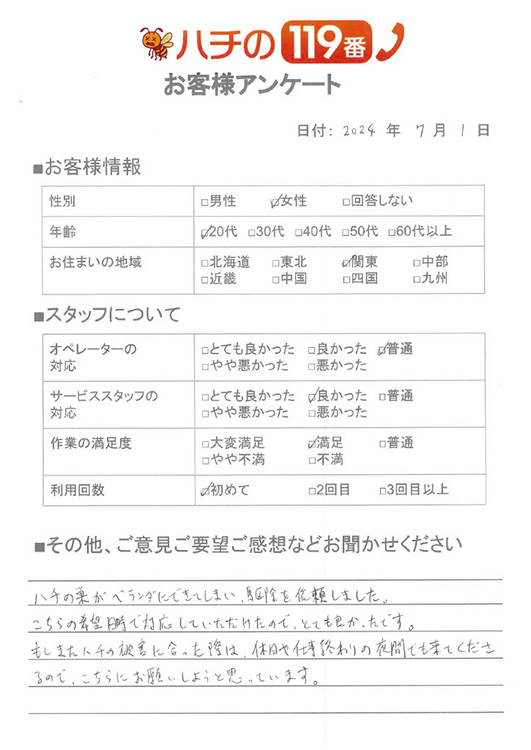 ハチの119番
お客様アンケート
日付: 2024 年 7 月 1 日
■お客様情報
性別 □男性 ☑女性 □回答しない
年齢 ☑20代 □30代 □40代 □50代 □60代以上
お住まいの地域 □北海道 □東北 ☑関東 □中部
□近畿 □中国 □四国 □九州
■スタッフについて
オペレーターの対応 □とても良かった □良かった ☑普通
□やや悪かった □悪かった
サービススタッフの対応 □とても良かった ☑良かった □普通
□やや悪かった □悪かった
作業の満足度 □大変満足 ☑満足 □普通
□やや不満 □不満
利用回数 ☑初めて □2回目 □3回目以上
■その他、ご意見ご要望ご感想などお聞かせください
ハチの巣がベランダにできてしまい、駆除を依頼しました。
こちらの希望日時で対応していただけたので、とても良かったです。
もしまたハチの被害に合った際は、休日や仕事終わりの夜間でも来てくださ
るので、こちらにお願いしようと思っています。